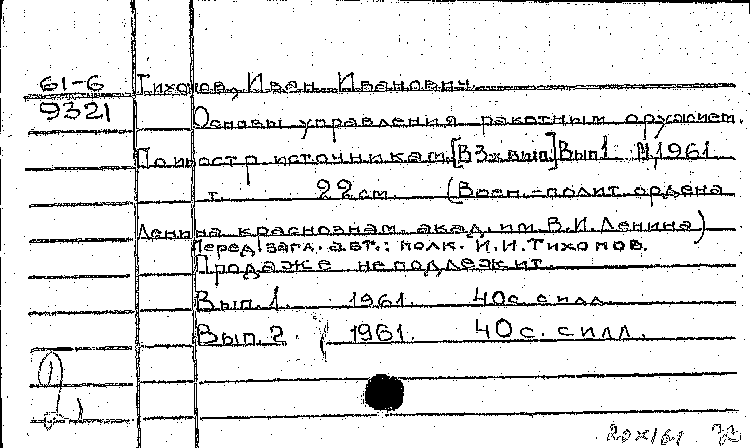 61-6 Тихонов, Иван Иванович.
9321 Основы управления ракетным оружием.
По иностр. источникам. [В 3х вып.] Вып. 1 М, 1961
т. 22 см. (Воен.-полит. ордена
Ленина краснознам. акад. им. В.И. Ленина)
Перед загл. авт.: полк. И.И. Тихонов.
Продаже не подлежит.
Вып. 1. 1961. 40 с. с илл.
Вып. 2. 1961. 40 с. с илл.
20 X/61